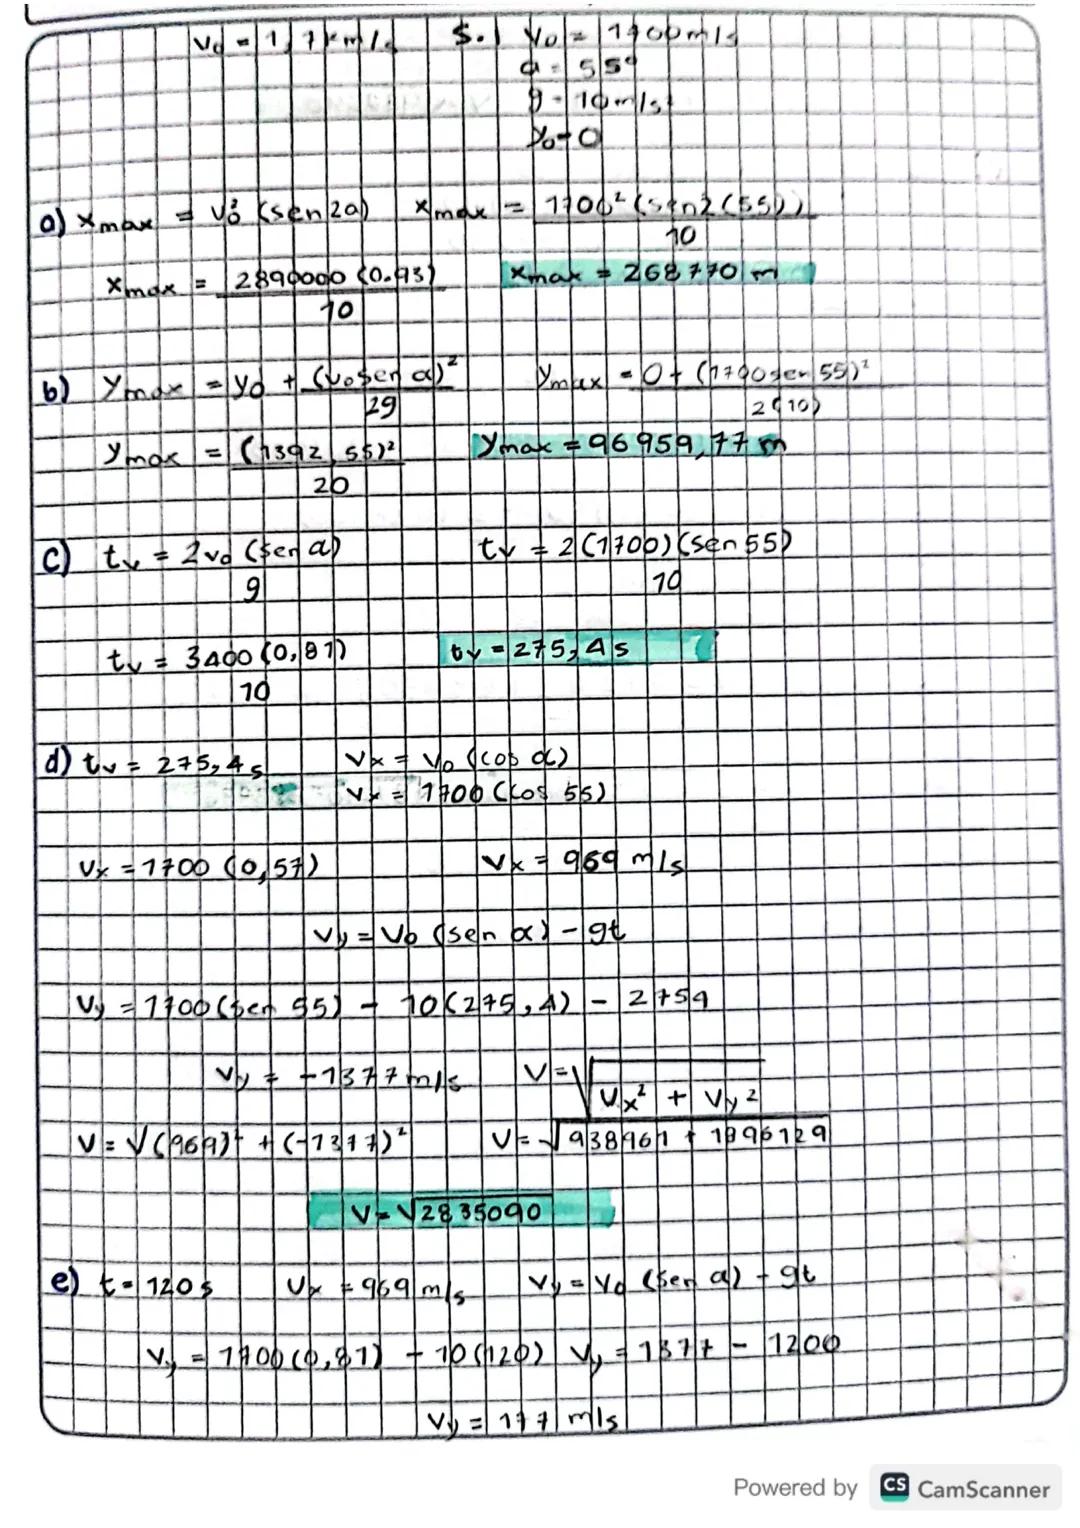 V₀ = 1,7 km/s S.I V₀ = 1700 m/s
α = 55°
g = 10 m/s²
y₀ = 0
a) Xmax = V₀² (sen 2α) Xmax = 1700² (sen 2 (55))
10
Xmax = 2890000 (0.93) Xmax = 268770 m
10
b) Ymax = y₀ + (V₀ sen α)² Ymax = 0 + (1700 sen 55)²
2g 2(10)
Ymax = (1392,55)² Ymax = 96959,77 m
20
c) tv = 2v₀ (sen α) tv = 2(1700)(sen 55)
g 10
tv = 3400 (0,81) tv = 275,4 s
10
d) tv = 275,4 s Vx = V₀ (cos α)
Vx = 1700 (cos 55)
Vx = 1700 (0,57) Vx = 969 m/s
Vy = V₀ (sen α) - gt
Vy = 1700 (sen 55) - 10 (275,4) - 2754
Vy = -1377 m/s V = √Vx² + Vy²
V = √(969)² + (-1377)² V = √938961 + 1896129
V = √2835090
e) t = 120 s Vx = 969 m/s Vy = V₀ (sen α) - gt
Vy = 1700 (0,81) - 10 (120) Vy = 1377 - 1200
Vy = 177 m/s
Powered by CS CamScanner